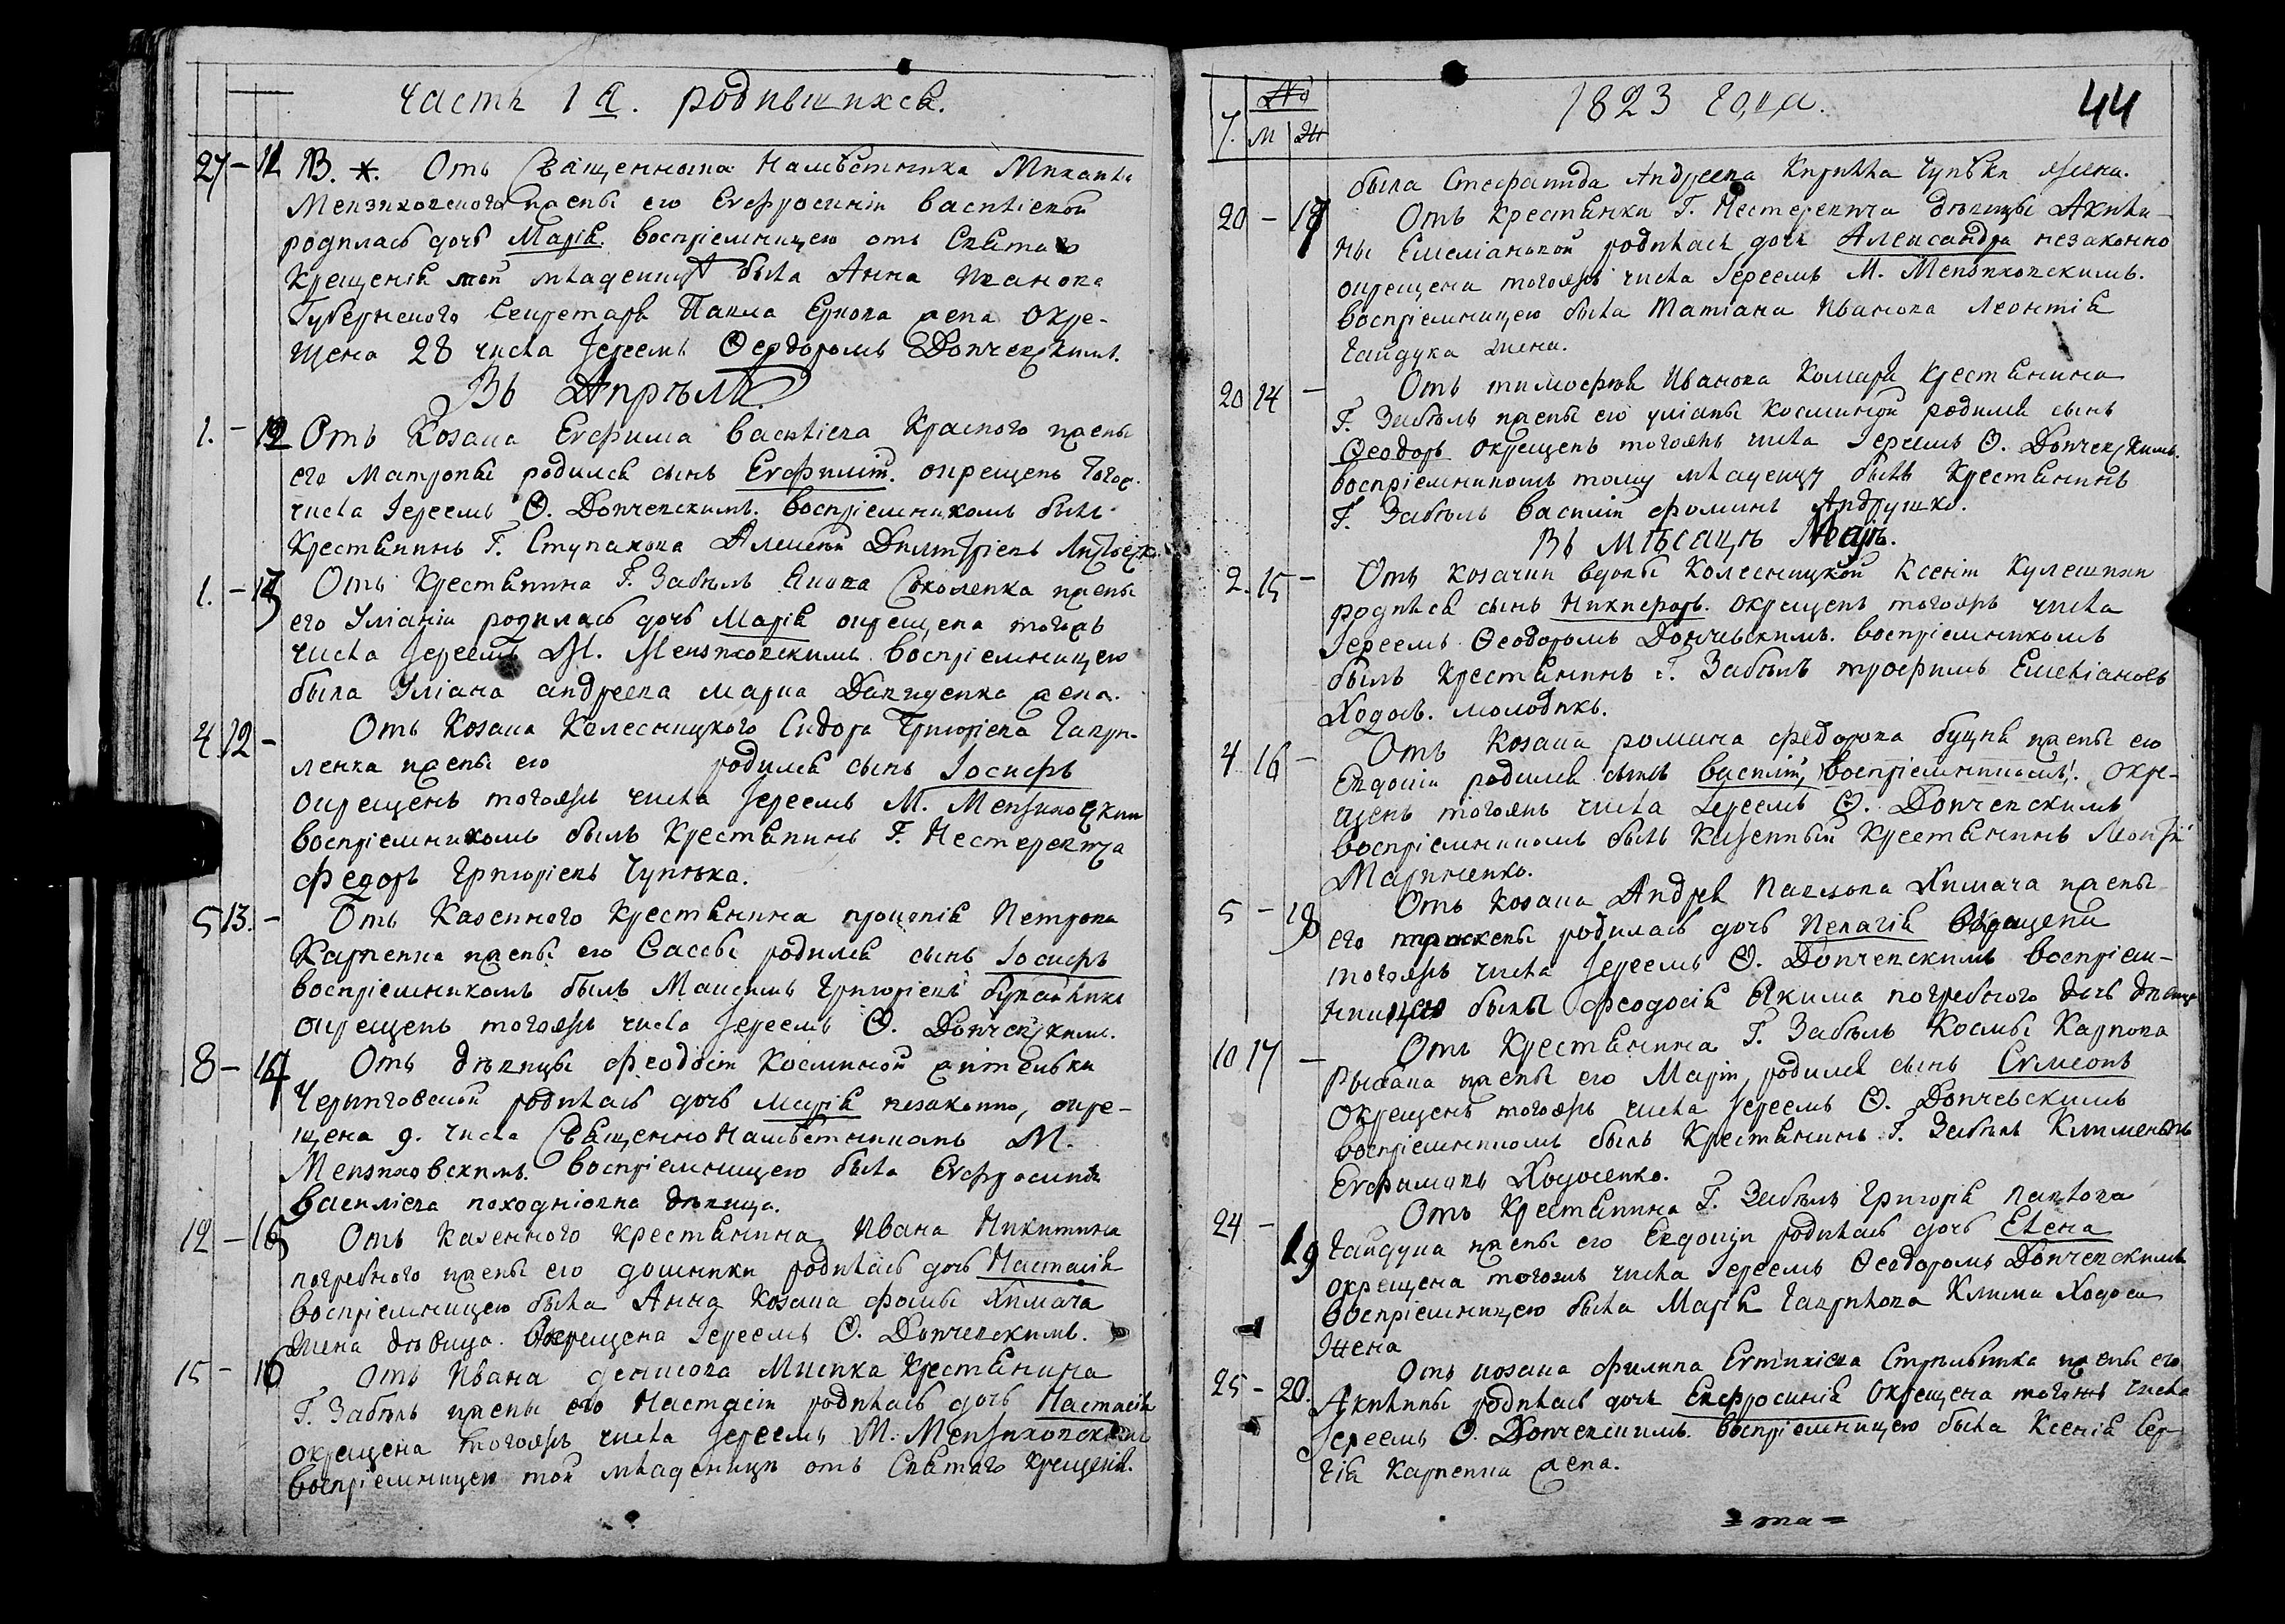 Часть 1я. родившихся.
27 - 11 NВ. *. Отъ Священнома Намѣстника Михаила
Мензиховского и жены его Евфросиніи Василіевой
родилась дочь Марія. воспріемницею отъ святаго
Крещенія той младеницы была Анна Иванова
Губернского Секретаря Павла жена окре-
щена 28 числа Іереемъ Ѳеодоромъ Дончевскимъ.
Въ Апрѣлѣ.
1. - 12 Отъ Козака Евфима Василіева Красного и жены
его Матроны родился сынъ Евфимій. окрещенъ того ж.
числа Іереемъ Ѳ. Дончевскимъ. воспріемникомъ былъ
Крестянинъ Г. Ступакова Алексѣй Димитріевъ
1. - 13 Отъ Крестянина Г. Забѣлъ Якова Соколенка и жены
его Уліаніи родилась дочь Марія окрещена тогожъ
числа Іереемъ М. Мензиховскимъ воспріемницею
была Уліана андреева марка Давиденка жена.
4 12 - Отъ Козака Колесницкого Сидора Григоріева Гаври-
ленка и жены его родился сынъ Іосифъ
окрещенъ тогожъ числа Іереемъ М. Мензиховским
воспріемникомъ былъ Крестянинъ Г. Нестеревича
федоръ Григоріевъ Чупѣка.
5 13. - Отъ Казенного Крестянина прокопія Петрова
Карпенка и жены его Вассы родился сынъ Іосифъ
воспріемникомъ былъ Максимъ Григоріевъ
окрещенъ тогожъ числа Іереемъ Ѳ. Дончевскимъ.
8 - 14 Отъ дѣвицы феодосіи Косминой жителки
Черниговской родилась дочь Марія незаконно, окре-
щена 9. числа Священно Намѣстникомъ М.
Мензиховскимъ. воспріемницею была Евфросинія
василіева походніовна дѣвица.
12 - 15 Отъ казенного крестянина Ивана Никитина
погребного и жены его домники родилась дочь Настасія
воспріемницею была Анна козака фомы Химача
жена дѣвица. окрещена Іереемъ Ѳ. Дончевскимъ.
15 - 16 Отъ Ивана денисова Миенка крестянина
Г. Забѣлъ и жены его Настасіи родилась дочь Настасія
окрещена тогожъ числа Іереемъ М. Мензиховским
воспріемницею той младеницы отъ Святаго крещенія.
1823 Года. 44
Ч. № М Ж
была Стефанида Андреева Кирила Чупѣки жена.
20 - 17 Отъ крестянки Г. Нестеревича дѣвицы Акили-
ны Емеліановой родилась дочь Александра незаконно
окрещена тогожъ числа Іереемъ М. Мензиховскимъ.
воспріемницею была Татіана Иванова Леонтія
Гайдука жена.
20 14 - Отъ тимофѣя Иванова Комара крестянина
Г. Забѣлъ и жены его уліаны косминой родился сынъ
Ѳеодоръ окрещенъ тогожъ числа Іереемъ Ѳ. Дончевскимъ.
воспріемникомъ тому младенцу былъ Крестянинъ
Г. Забѣлъ василій фоминъ Андрушко.
Въ мѣсацѣ Маіѣ.
2. 15 - Отъ козачки вдовы Колесницкой Ксеніи Кулешихи
родился сынъ Никифоръ. окрещенъ тогожъ числа
Іереемъ Ѳеодоромъ Дончевскимъ. воспріемникомъ
былъ Крестянинъ Г. Забѣлъ трофимъ Емеліановъ
Ходосъ. молодикъ.
4 16 - Отъ Козака романа федорова буцня и жены его
Евдокіи родился сынъ василій, воспріемникомъ. окре-
щенъ тогожъ числа Іереемъ Ѳ. Дончевскимъ
воспріемникомъ былъ казенный Крестянинъ Леонтій
Марченко.
5 - 18 Отъ козака Андрея павлова Химача и жены
его параскевы родилась дочь Пелагія окрещена
тогожъ числа Іереемъ Ѳ. Дончевскимъ воспріем-
ницею была феодосія Якима погребного дочь дѣвица
10 17 - Отъ Крестянина Г. Забѣлъ Космы Карпова
Рыбака и жены его Маріи родился сынъ Сѵмеонъ
окрещенъ тогожъ числа Іереемъ Ѳ. Дончевскимъ
воспріемникомъ былъ Крестянинъ Г. Забѣлъ Климентъ
Евфимовъ Ходосенко.
24 - 19 Отъ Крестянина Г. Забѣлъ Григорія павлова
Гайдука и жены его Евдокіи родилась дочь Елена
окрещена тогожъ числа Іереемъ Ѳеодоромъ Дончевскимъ
воспріемницею была Марія Гаврилова Клима Ходоса
Жена
25 - 20. Отъ козака филипа Евтихіева Стрилника и жены его
Акилины родилась дочь Евфросинія окрещена тогожъ числа
Іереемъ Ѳ. Дончевскимъ. воспріемницею была Ксенія Сер-
гія Карпенка жена.
= та =